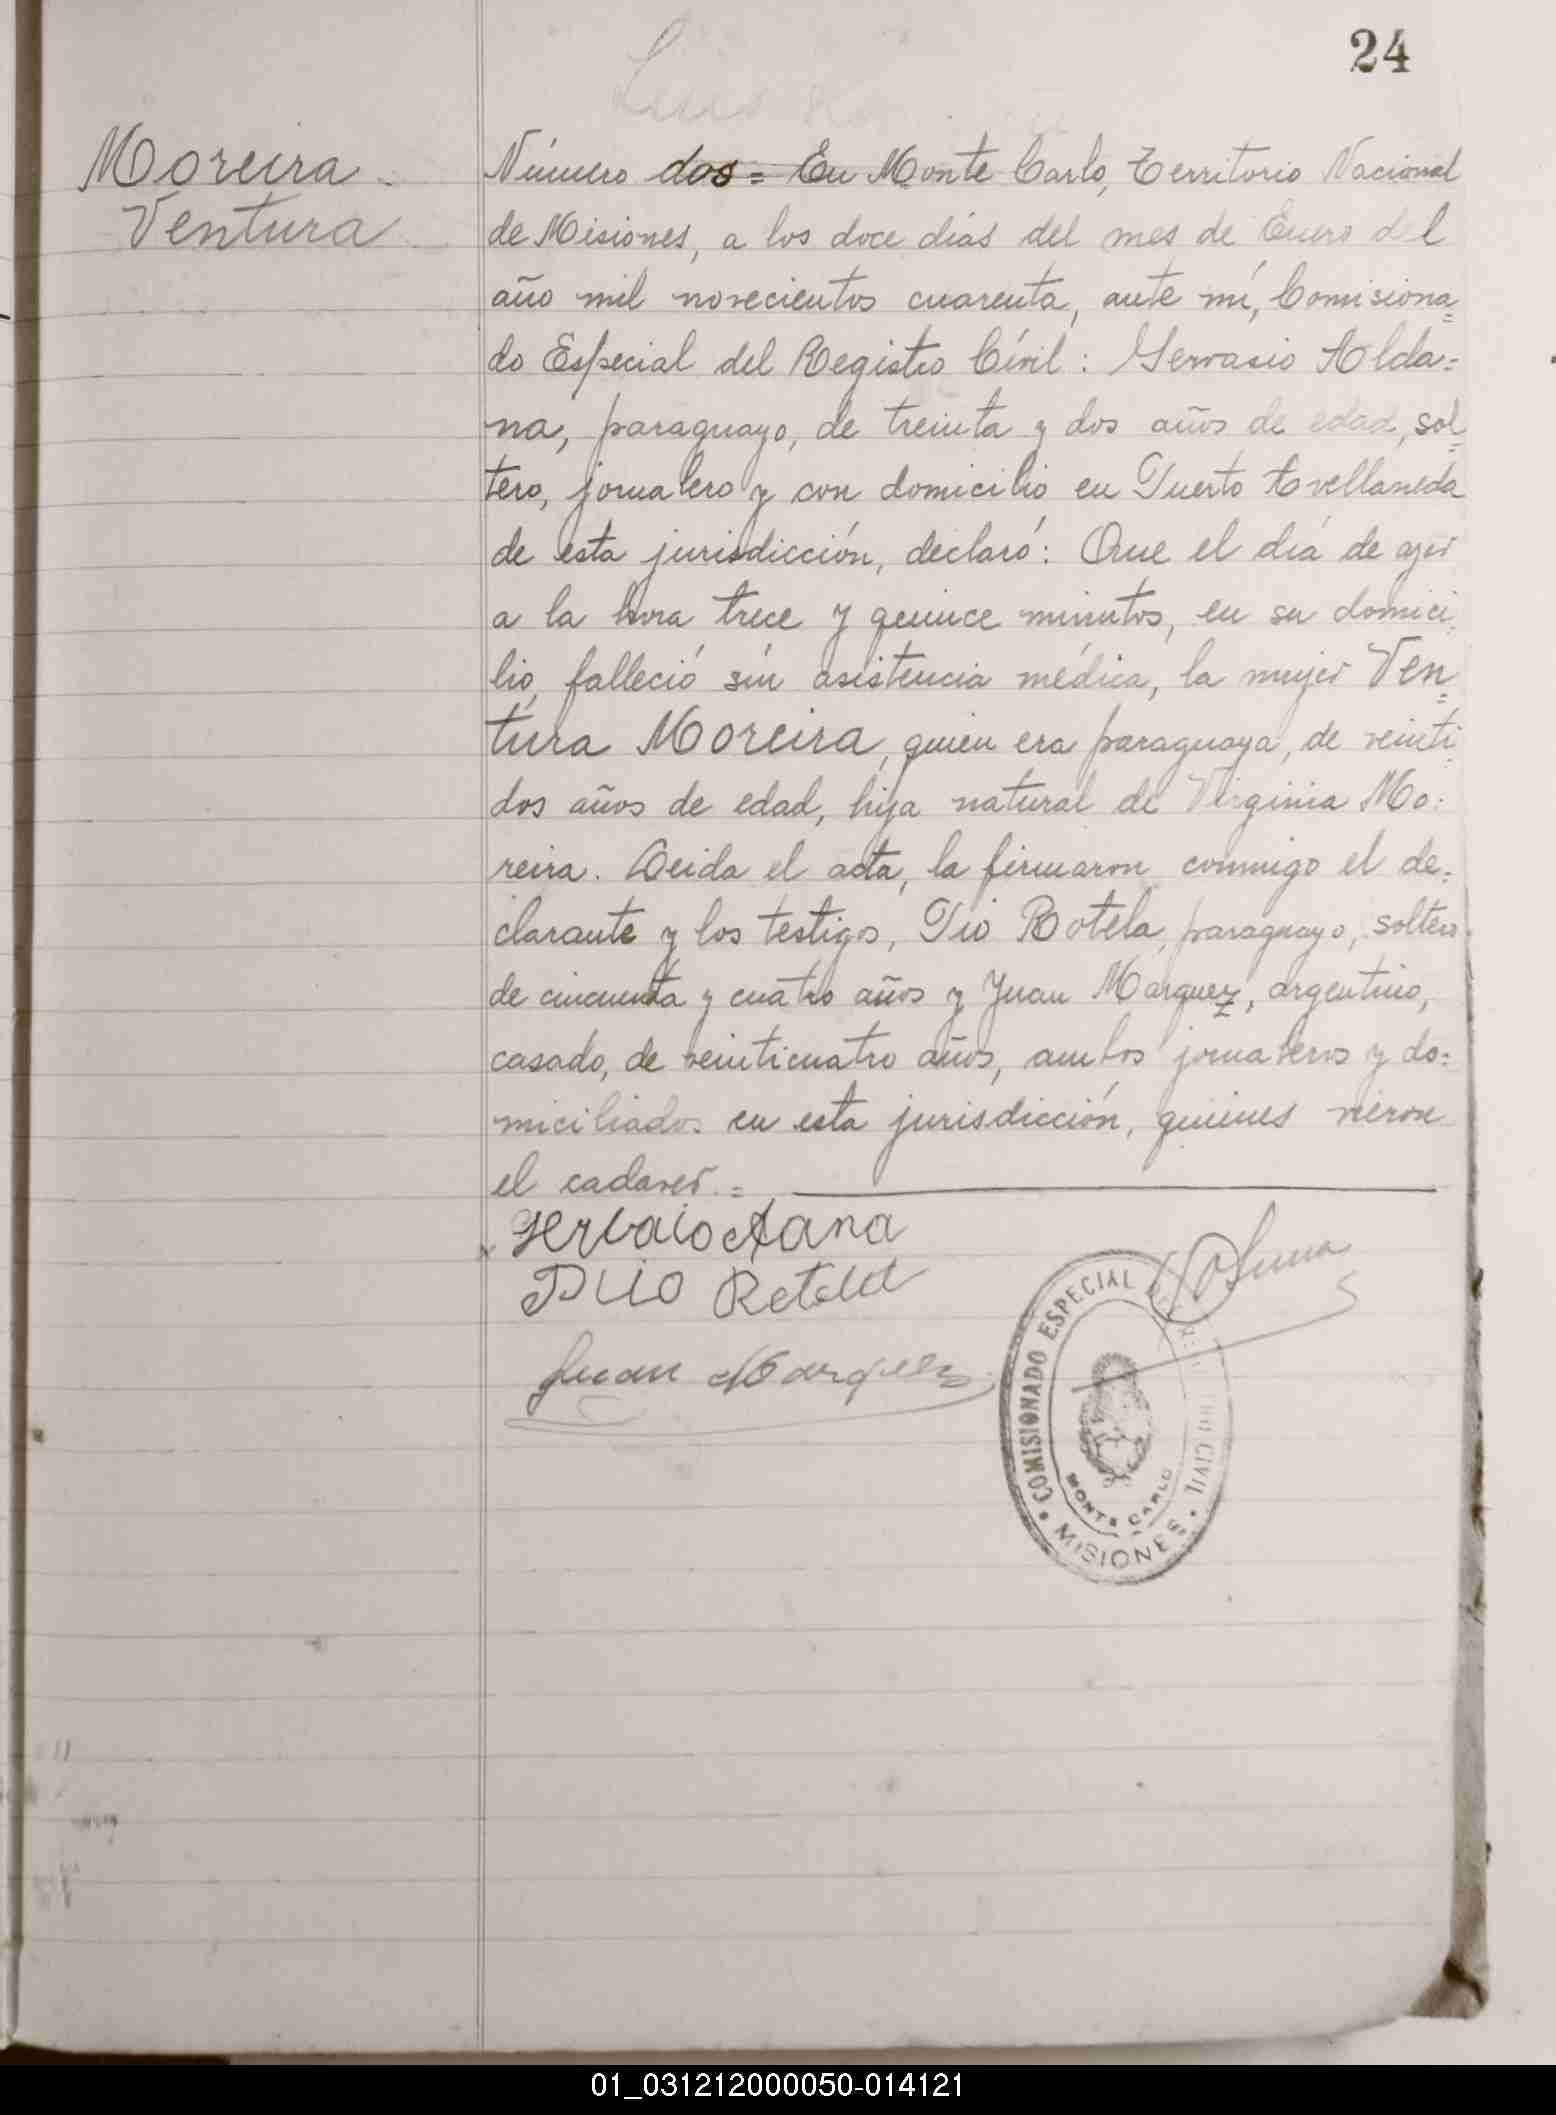 24
Moreira
Ventura
Número dos = En Monte Carlo, Territorio Nacional
de Misiones, a los doce días del mes de Enero del
año mil novecientos cuarenta, ante mí, Comisiona=
do Especial del Registro Civil: Gervasio Alda=
na, paraguayo, de treinta y dos años de edad, sol=
tero, jornalero y con domicilio en Puerto Avellaneda
de esta jurisdicción, declaró: Que el día de ayer
a la hora trece y quince minutos, en su domici=
lio, falleció sin asistencia médica, la mujer Ven=
tura Moreira, quien era paraguaya, de veinti=
dos años de edad, hija natural de Virginia Mo=
reira. Leida el acta, la firmaron conmigo el de=
clarante y los testigos, Pio Rotela, paraguayo, soltero
de cincuenta y cuatro años y Juan Marquez, argentino,
casado, de veinticuatro años, ambos jornaleros y do=
miciliados en esta jurisdicción, quienes vieron
el cadaver. =
Juan Marquez
COMISIONADO ESPECIAL DEL REGISTRO CIVIL
MONTE CARLO
MISIONES
01_031212000050-014121